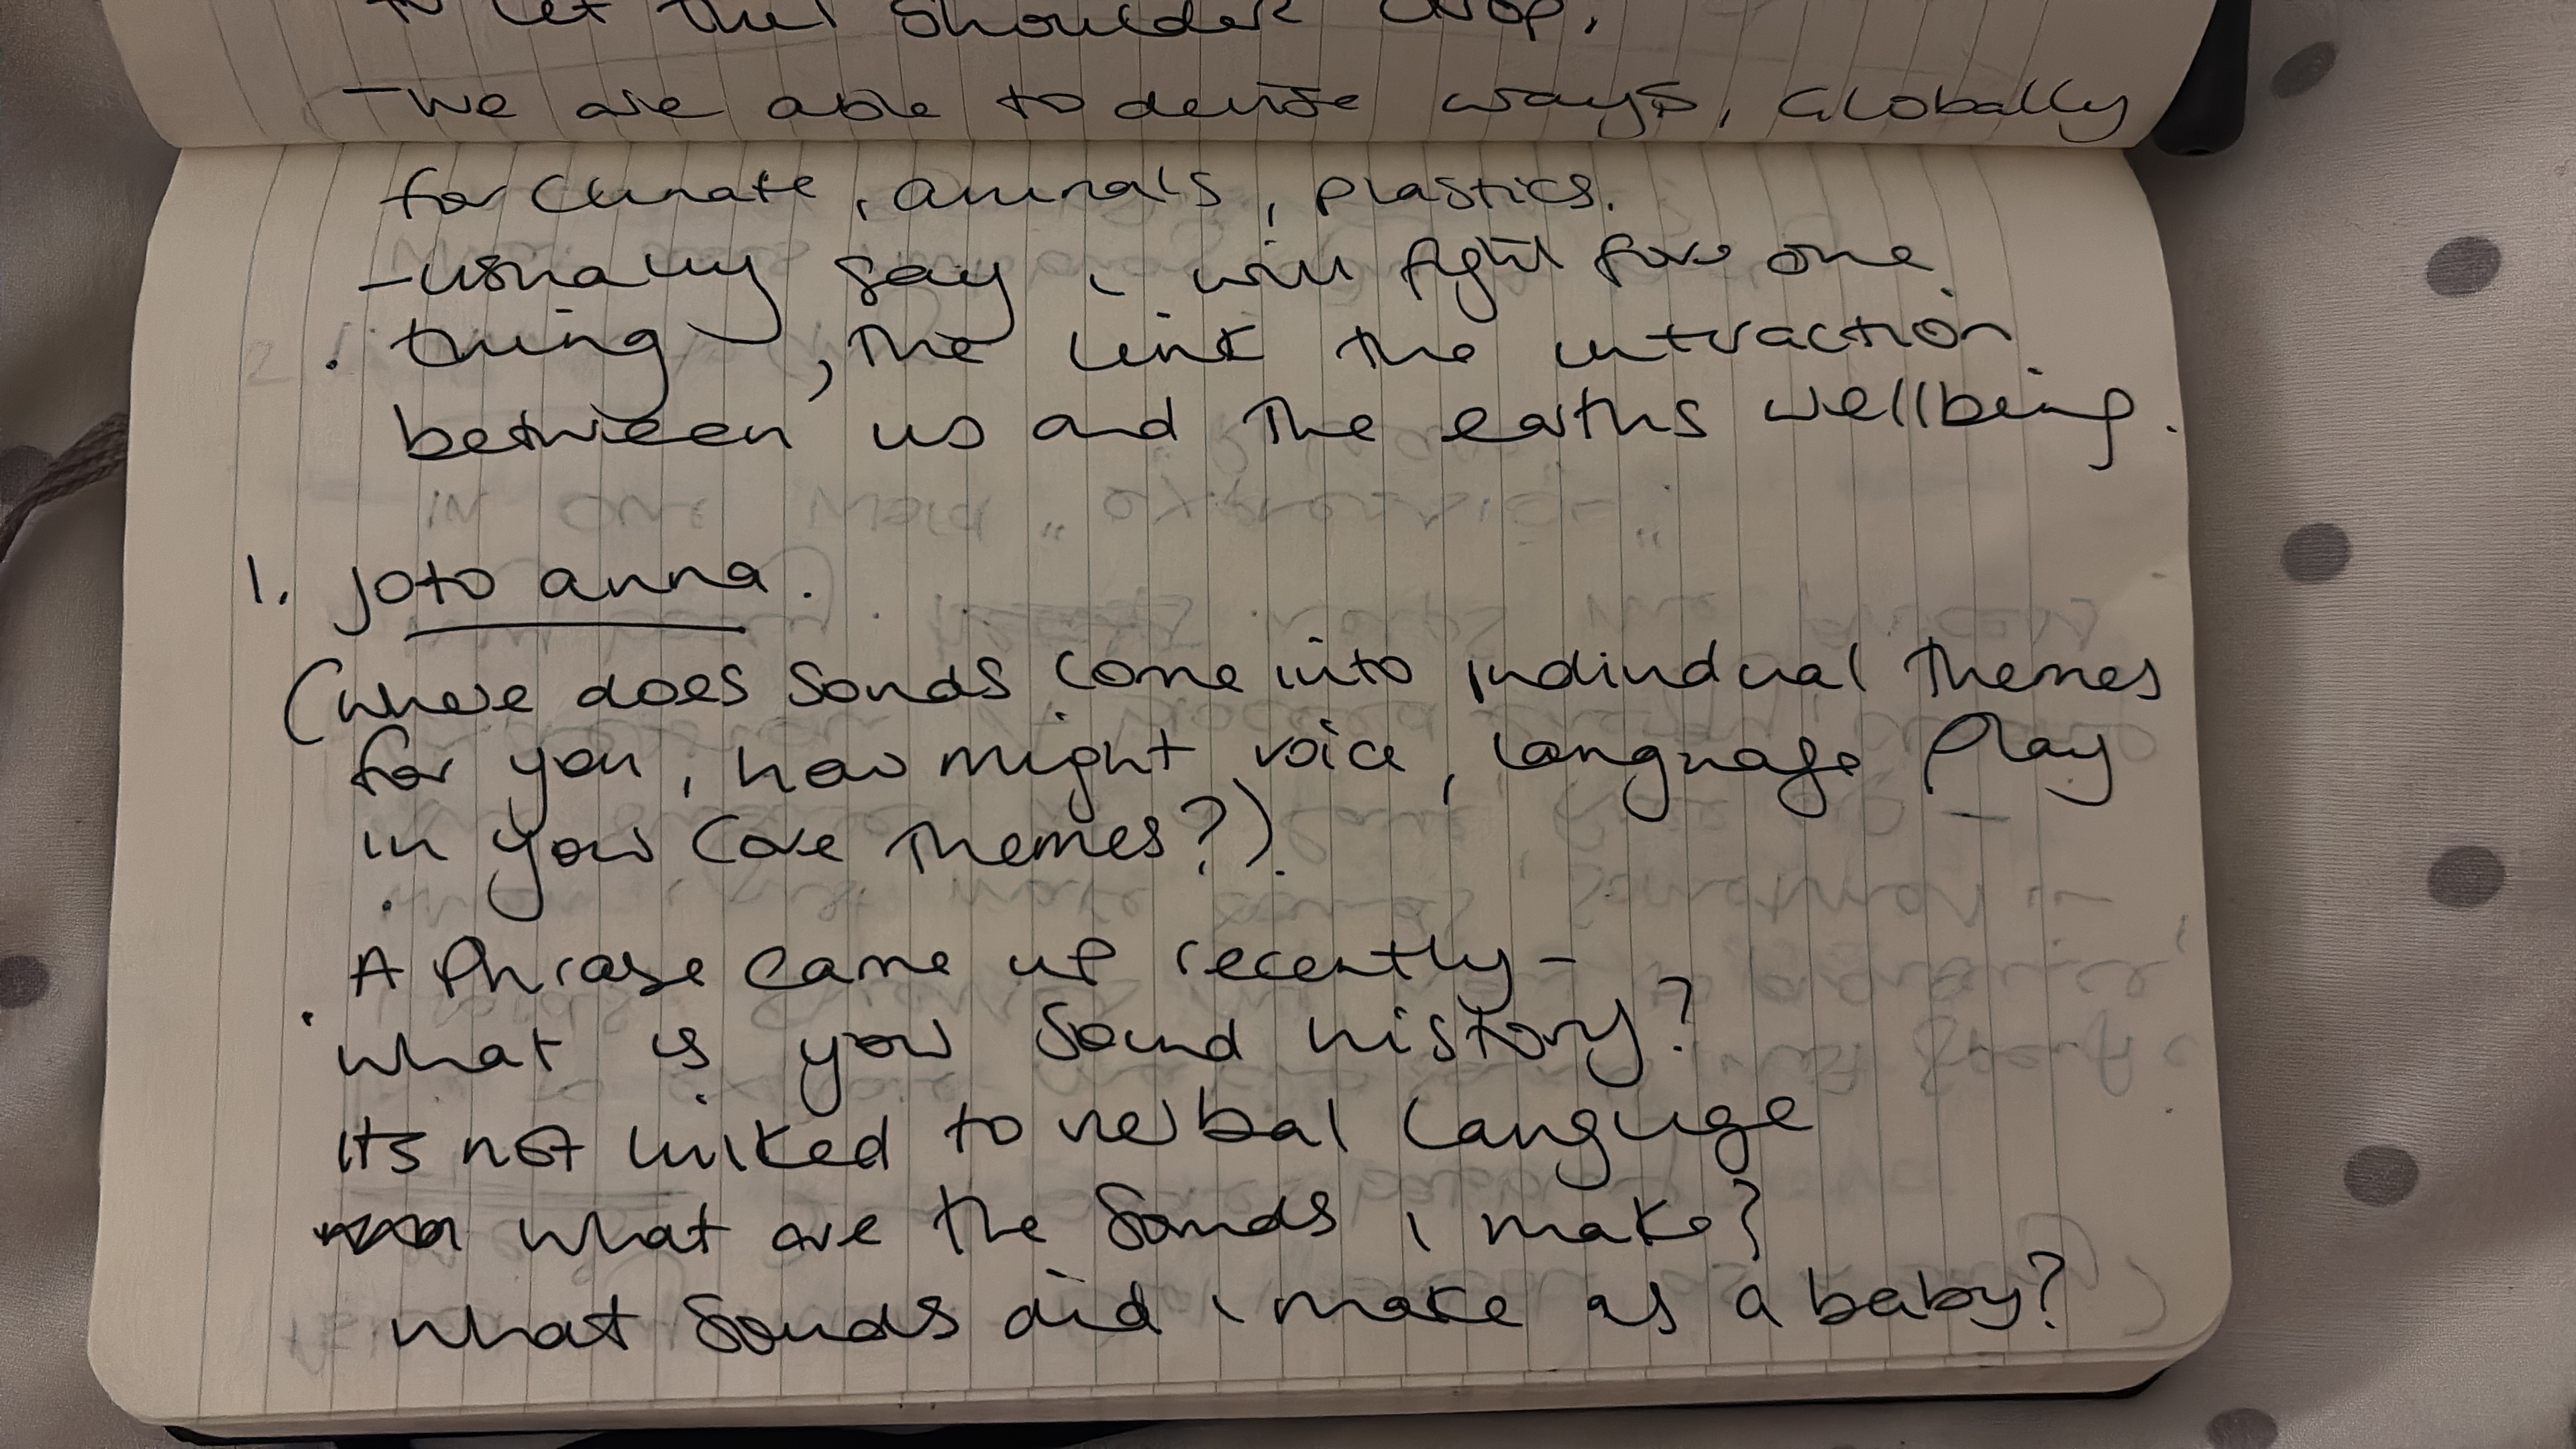 to let the shoulder drop.
- we are able to devise ways, Globally
for climate, animals, plastics.
- usually say i will fight for one
thing, the link the intraction
between us and the earths wellbeing.
1. jo to anna.
(where does sonds come into individual themes
for you, how might voice, language play
in your core themes?).
A phrase came up recently -
what is your sound history?
its not linked to verbal languge
what are the sonds i make?
what sounds did i make as a baby?